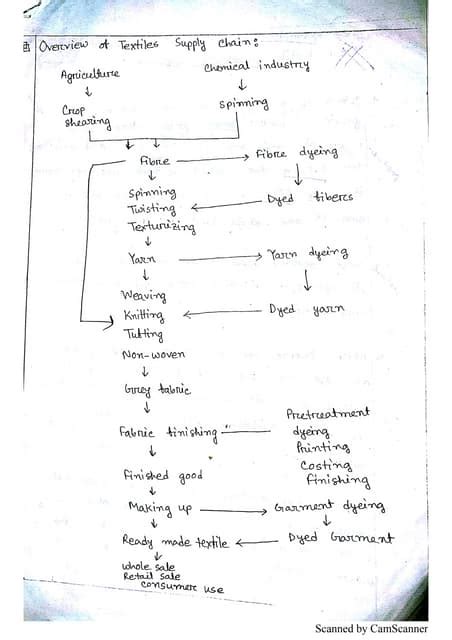 Overview of Textiles Supply Chain:
Agriculture
Chemical industry
Crop
shearing
Spinning
Fibre
Fibre dyeing
Spinning
Twisting
Dyed fibers
Texturizing
Yarn
Yarn dyeing
Weaving
Knitting
Dyed yarn
Tufting
Non-woven
Grey fabric
Pretreatment
Fabric finishing
dyeing
Printing
Costing
Finished good
finishing
Making up
Garment dyeing
Ready made textile
Dyed Garment
whole sale
Retail sale
Consumer use
Scanned by CamScanner